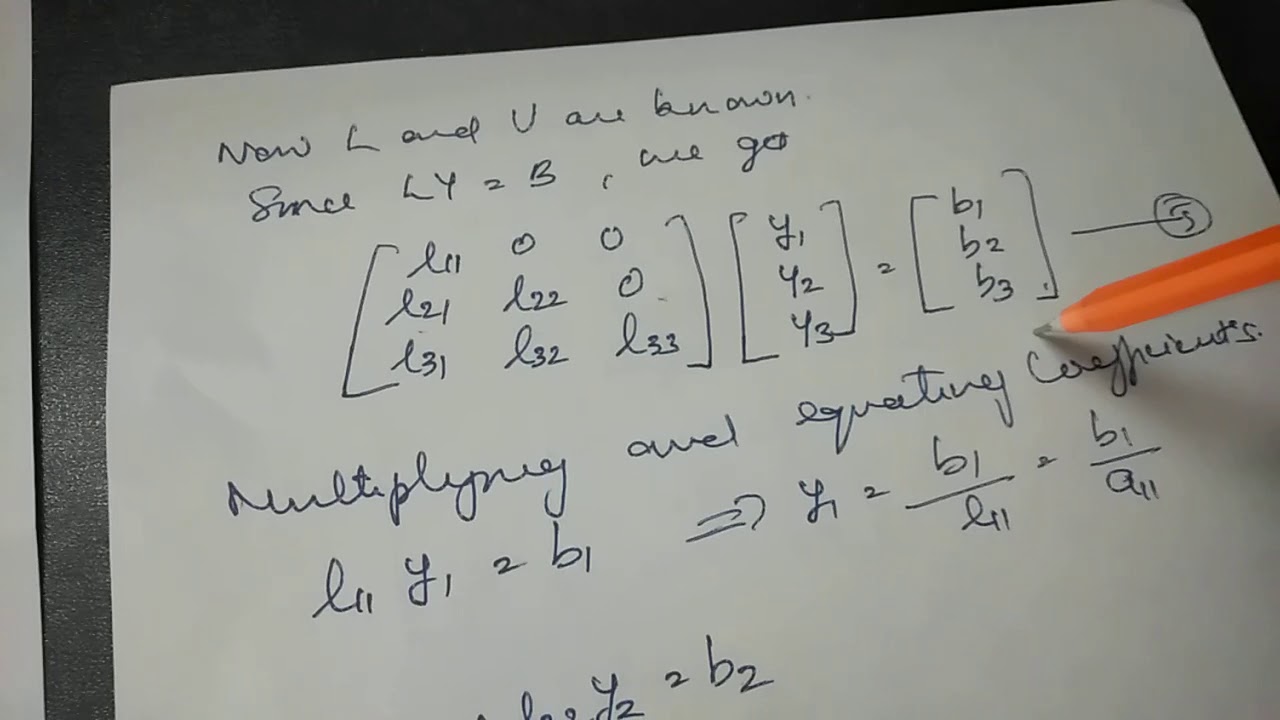 Now L and U are known.
Since LY = B, we get
[l11 0 0] [y1] = [b1] — (5)
[l21 l22 0] [y2] [b2]
[l31 l32 l33] [y3] [b3]
Multiplying and equating Coefficients.
l11 y1 = b1 ⇒ y1 = b1/l11 = b1/a11
y2 = b2